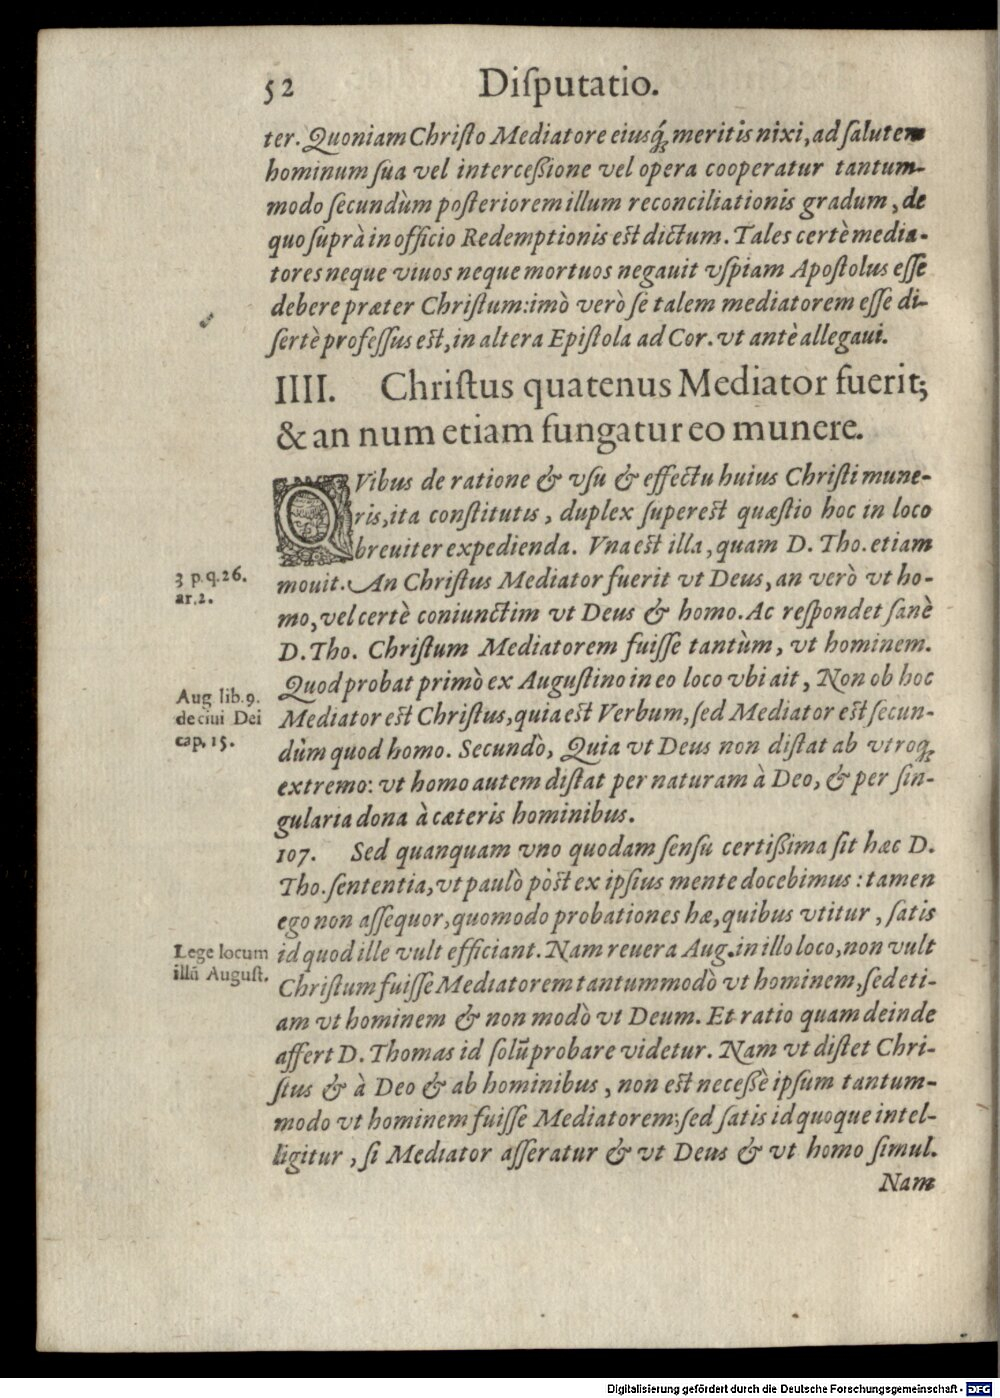 52 Diſputatio.
ter. Quoniam Chriſto Mediatore eiusq́; meritis nixi, ad ſalutem
hominum ſua vel interceßione vel opera cooperatur tantum-
modo ſecundùm poſteriorem illum reconciliationis gradum, de
quo ſuprà in officio Redemptionis est dictum. Tales certè media-
tores neque viuos neque mortuos negauit vſpiam Apoſtolus eſſe
debere præter Chriſtum: imò verò ſe talem mediatorem eſſe di-
ſertè profeſſus est, in altera Epiſtola ad Cor. vt antè allegaui.
IIII. Chriſtus quatenus Mediator fuerit;
& an num etiam fungatur eo munere.
QVibus de ratione & vſu & effectu huius Chriſti mune-
ris, ita conſtitutis, duplex ſuperest quæſtio hoc in loco
breuiter expedienda. Vna est illa, quam D. Tho. etiam
3 p.q.26.
ar.2.
mouit. An Chriſtus Mediator fuerit vt Deus, an verò vt ho-
mo, vel certè coniunctim vt Deus & homo. Ac reſpondet ſanè
D. Tho. Chriſtum Mediatorem fuiſſe tantùm, vt hominem.
Quod probat primò ex Auguſtino in eo loco vbi ait, Non ob hoc
Aug lib.9.
de ciui Dei
cap. 15.
Mediator est Chriſtus, quia est Verbum, ſed Mediator est ſecun-
dùm quod homo. Secundò, Quia vt Deus non diſtat ab vtroq;
extremo: vt homo autem diſtat per naturam à Deo, & per ſin-
gularia dona à cæteris hominibus.
107. Sed quanquam vno quodam ſenſu certißima ſit hæc D.
Tho. ſententia, vt paulò pòst ex ipſius mente docebimus: tamen
ego non aſſequor, quomodo probationes hæ, quibus vtitur, ſatis
Lege locum
illũ Auguſt.
id quod ille vult efficiant. Nam reuera Aug. in illo loco, non vult
Chriſtum fuiſſe Mediatorem tantummodò vt hominem, ſed eti-
am vt hominem & non modò vt Deum. Et ratio quam deinde
affert D. Thomas id ſolũ probare videtur. Nam vt diſtet Chri-
ſtus & à Deo & ab hominibus, non est neceßè ipſum tantum-
modo vt hominem fuiſſe Mediatorem; ſed ſatis id quoque intel-
ligitur, ſi Mediator aſſeratur & vt Deus & vt homo ſimul.
Nam
Digitalisierung gefördert durch die Deutsche Forschungsgemeinschaft - DFG